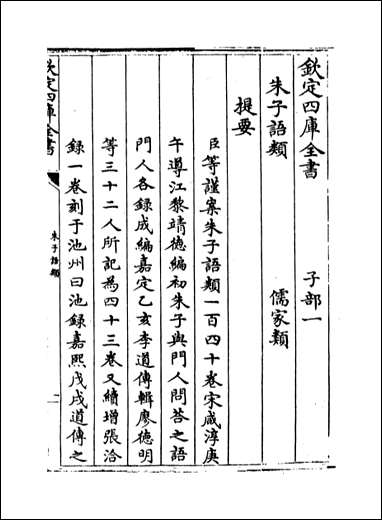 欽定四庫全書　子部一
朱子語類　儒家類
提要
臣等謹案朱子語類一百四十卷宋咸淳庚
午導江黎靖德編初朱子與門人問答之語
門人各録成編嘉定乙亥李道傳輯廖德明
等三十二人所記為四十三卷又續增張洽
録一卷刻于池州曰池録嘉熙戊戌道傳之
欽定四庫全書
朱子語類
一